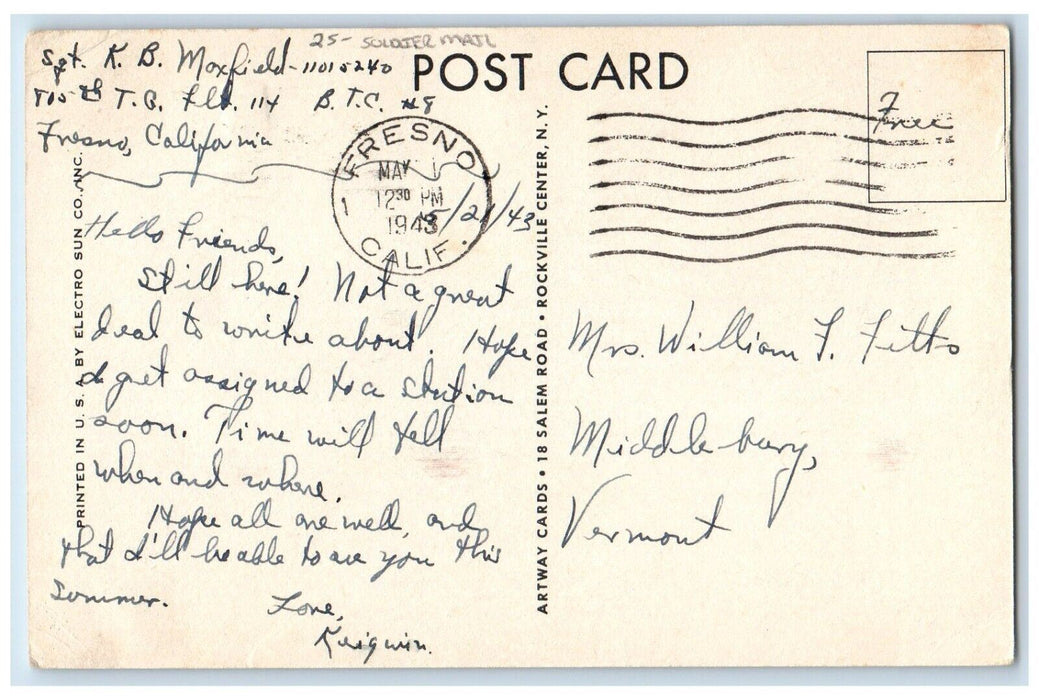 25- SOLDIER MAIL
Sgt. K. B. Moxfield - 11015240
705th T.G. Flt. 114 B.T.C. #8
Fresno, California
POST CARD
Free
FRESNO
MAY 1
12 30 PM
1943
CALIF.
1
/21/43
Hello Friends,
Still here! Not a great
deal to write about. Hope
I get assigned to a station
soon. Time will tell
when and where.
Hope all are well, and
that I'll be able to see you this
summer.
Love,
Keigwin.
PRINTED IN U. S. A. BY ELECTRO SUN CO., INC.
ARTWAY CARDS • 18 SALEM ROAD • ROCKVILLE CENTER, N. Y.
Mrs. William F. Fitts
Middlebury,
Vermont